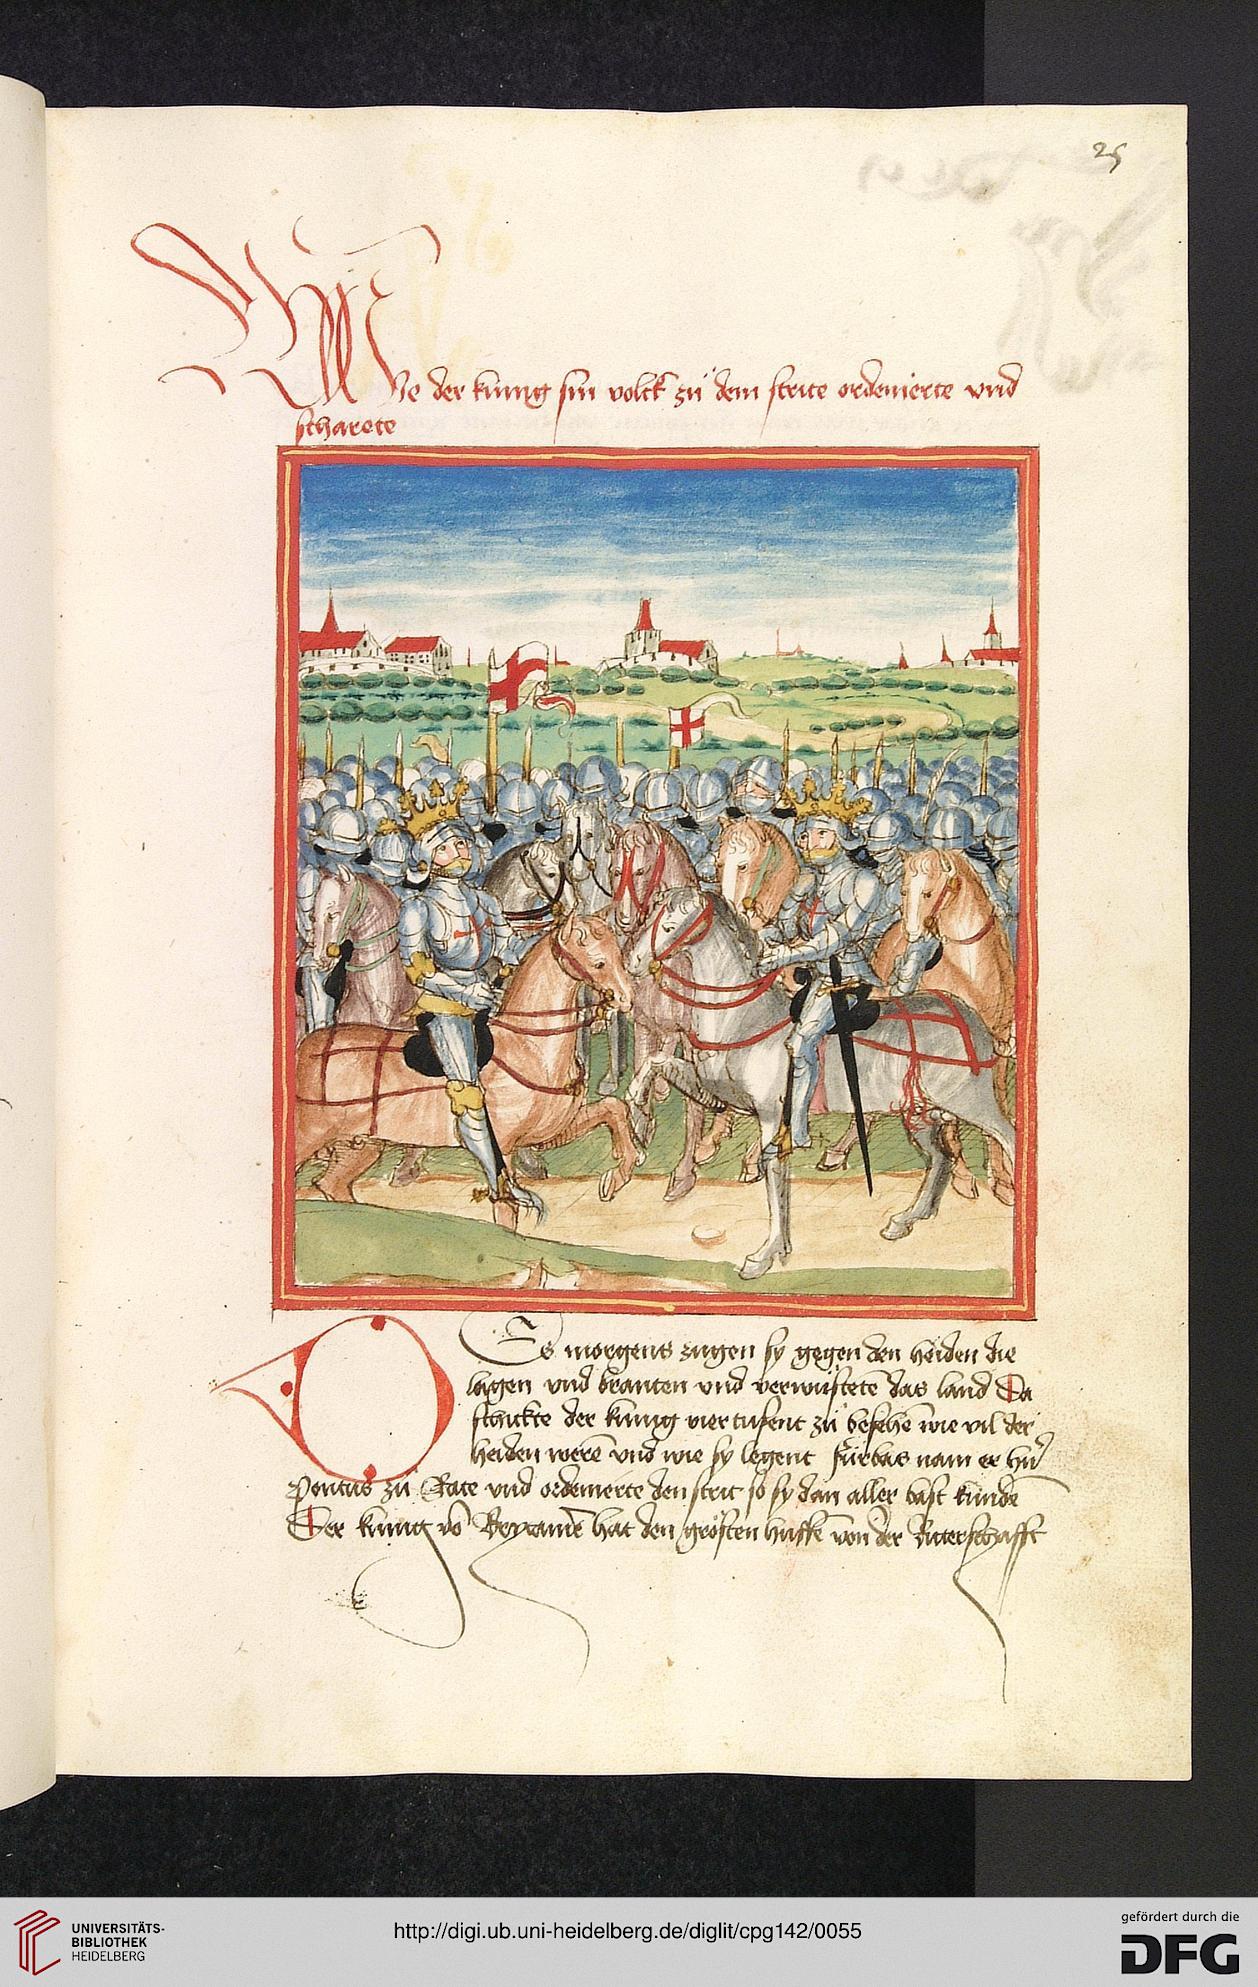 25
Wie der kunig sin volck zů dem strite ordenierte vnd
scharete
Des morgens zugen sy gegen den heiden die
lagen vnd branten vnd verwůstetē das land Da
schickte der kunig viertusent zů besehē wie vil der
heiden werē vnd wie sy legent fürbas nam er hŕ
Pontus zů Rate vnd ordenierte den strit so sy dan aller bast kunde
Der kunig vō Brytanie hat den grösten huffē von der Ritterschafft
UNIVERSITÄTS-
BIBLIOTHEK
HEIDELBERG
http://digi.ub.uni-heidelberg.de/diglit/cpg142/0055
gefördert durch die
DFG